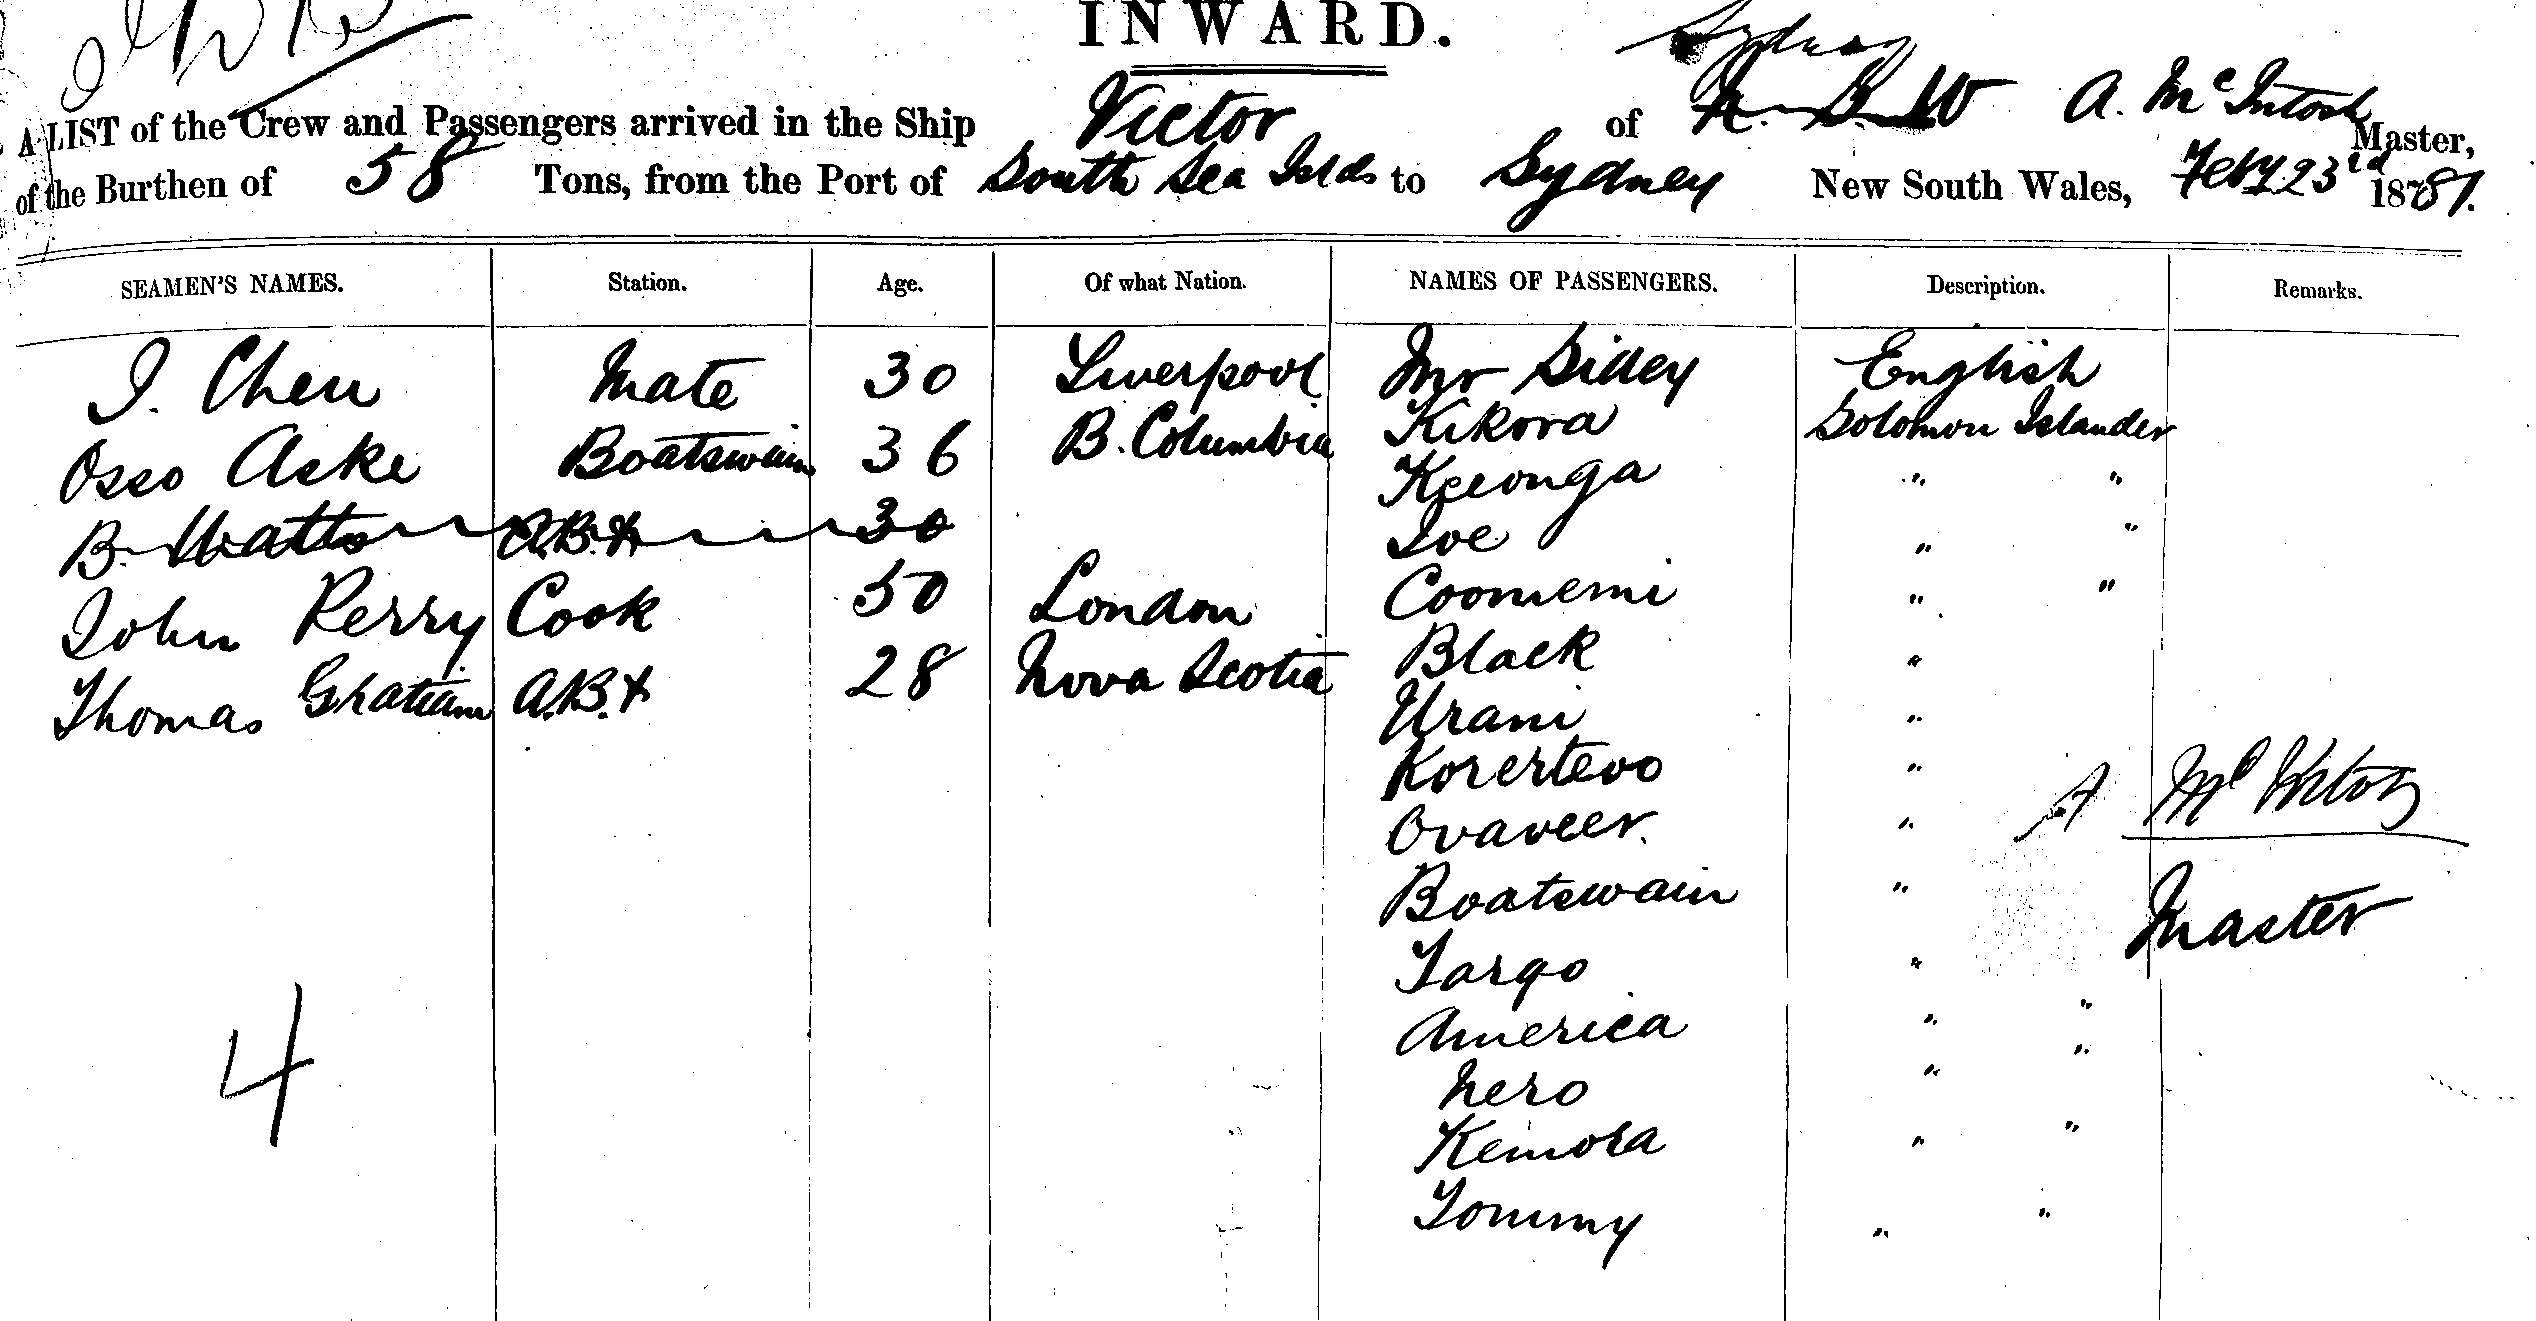 INWARD.
Sydney
A LIST of the Crew and Passengers arrived in the Ship Victor of N. S. W A. McIntosh Master,
of the Burthen of 58 Tons, from the Port of South Sea Islds to Sydney New South Wales, Feby 23rd 1881.
SEAMEN'S NAMES. Station. Age. Of what Nation. NAMES OF PASSENGERS. Description. Remarks.
J. Chew Mate 30 Liverpool Mr Sidley English
Osso Aske Boatswain 36 B. Columbia Kikora Solomon Islander
Keeonga " "
B. Watts A.B. 30 Joe " "
John Perry Cook 50 London Coomemi " "
Black "
Thomas Ghatiam A.B. 28 Nova Scotia Urani "
Korertevo "
A McIntosh
Ovaveer. "
Boatswain "
Master
Targo "
America " "
Nero " "
Kemora " "
Tommy " "
4